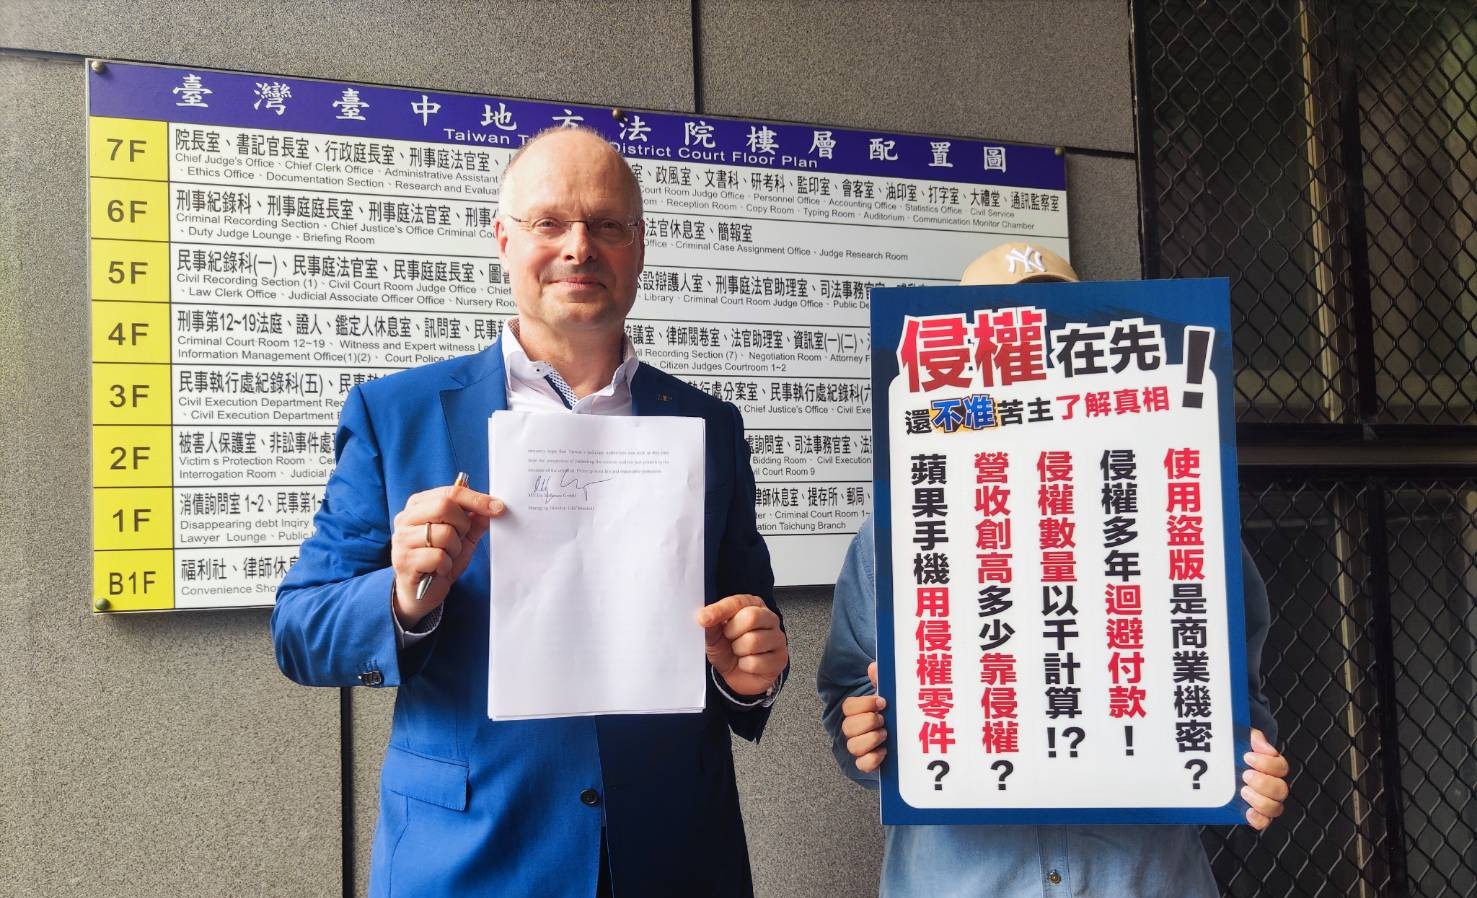 臺灣臺中地方法院樓層配置圖
Taiwan T District Court Floor Plan
7F
院長室、書記官長室、行政庭長室、刑事庭法官室、
室、政風室、文書科、研考科、監印室、會客室、油印室、打字室、大禮堂、通訊監察室
Chief Judge's Office、Chief Clerk Office、Administrative Assistant
Court Room Judge Office、Personnel Office、Accounting Office、Statistics Office、Civil Service
、Ethics Office、Documentation Section、Research and Evalua
、Reception Room、Copy Room、Typing Room、Auditorium、Communication Monitor Chamber
6F
刑事紀錄科、刑事庭庭長室、刑事庭法官室、刑事
法官休息室、簡報室
Criminal Recording Section、Chief Justice's Office Criminal Cou
Office、Criminal Case Assignment Office、Judge Research Room
、Duty Judge Lounge、Briefing Room
5F
民事紀錄科(一)、民事庭法官室、民事庭庭長室、圖
公設辯護人室、刑事庭法官助理室、司法事務官室、
Civil Recording Section (1)、Civil Court Room Judge Office、Chief
、Library、Criminal Court Room Judge Office、Public De
、Law Clerk Office、Judicial Associate Officer Office、Nursery Roo
4F
刑事第12~19法庭、證人、鑑定人休息室、訊問室、民事
協議室、律師閱卷室、法官助理室、資訊室(一)(二)、
Criminal Court Room 12~19、Witness and Expert witness Lo
Recording Section (7)、Negotiation Room、Attorney F
Information Management Office(1)(2)、Court Police
Citizen Judges Courtroom 1~2
3F
民事執行處紀錄科(五)、民事
執行處分案室、民事執行處紀錄科(六
Civil Execution Department Rec
Chief Justice's Office、Civil Exec
、Civil Execution Department
2F
被害人保護室、非訟事件處
處詢問室、司法事務官室、法
Victim s Protection Room、Cen
Bidding Room、Civil Execution
Interrogation Room、Judicial
Civil Court Room 9
1F
消債詢問室 1~2、民事第1~
律師休息室、提存所、郵局、
Disappearing debt Inqiry
Criminal Court Room 1~
Lawyer Lounge、Public
Taichung Branch
B1F
福利社、律師休
Convenience Sho
NY
侵權在先!
還不准苦主了解真相
使用盜版是商業機密?
侵權多年迴避付款!
侵權數量以千計算!?
營收創高多少靠侵權?
蘋果手機用侵權零件?